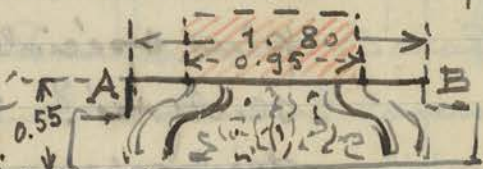 1.80
0.95
A B
0.55